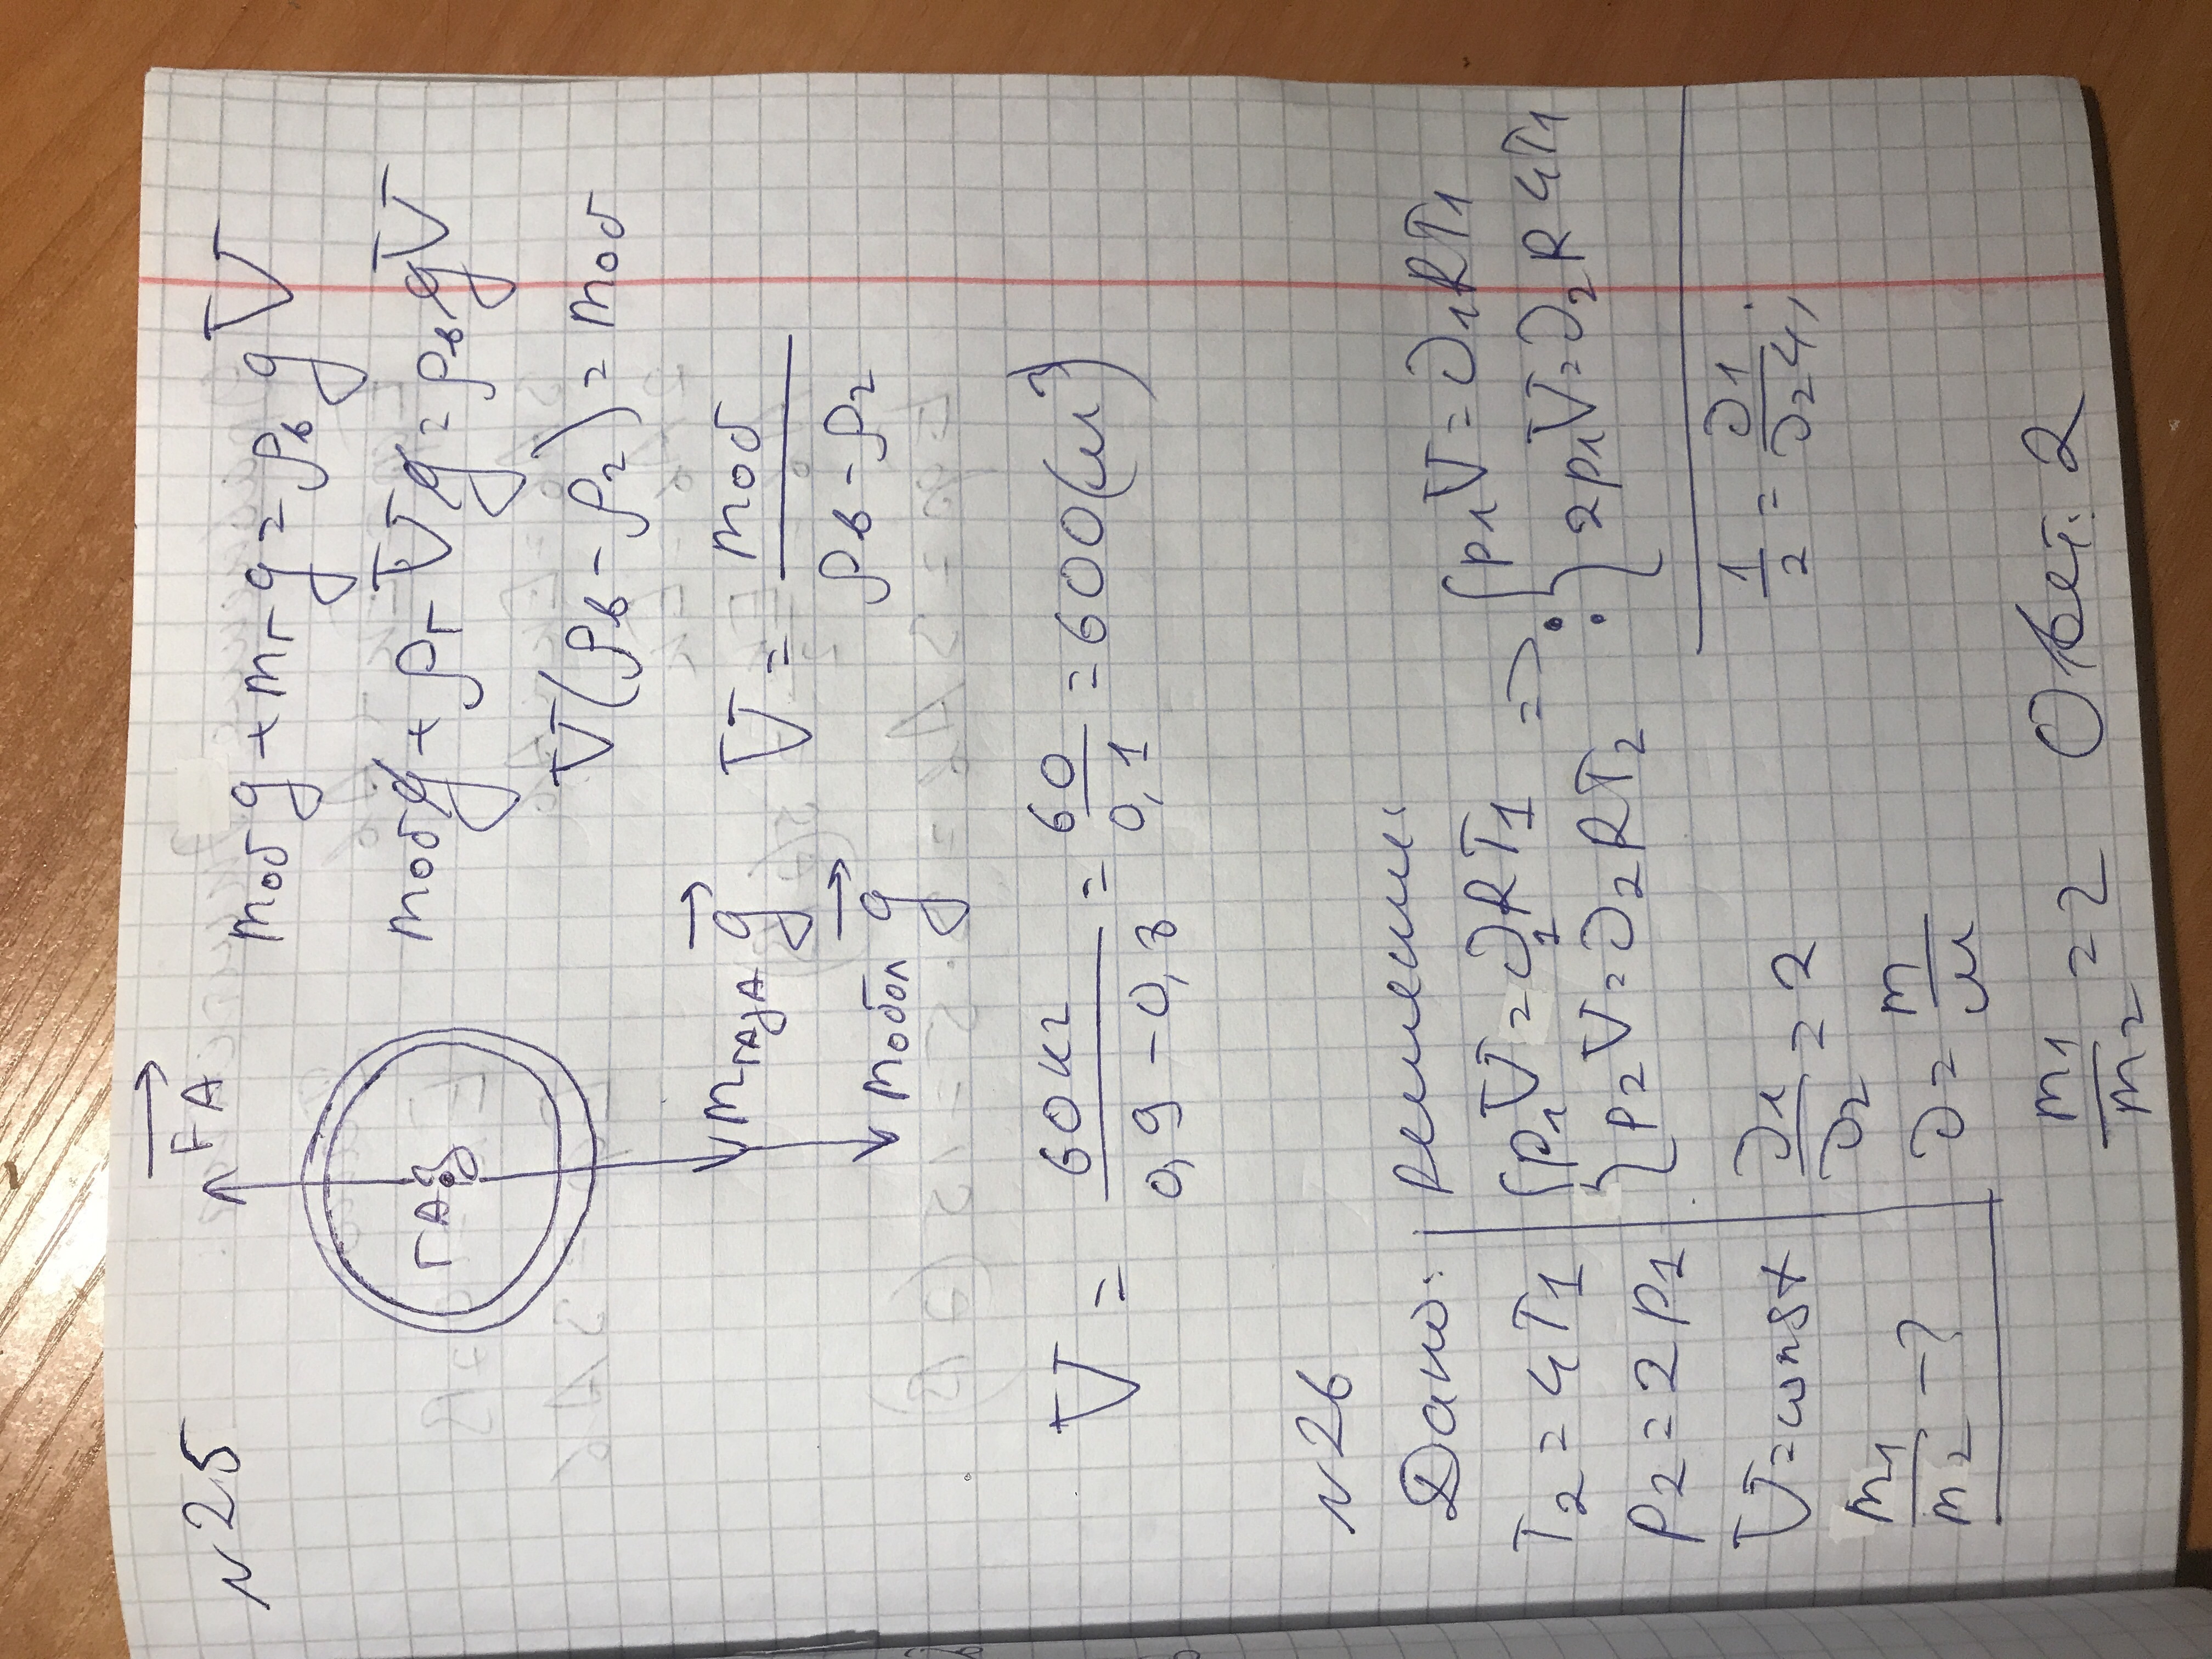 N 25
F_A
ГАЗ
m_ГАЗА g
m_обол g
m_об g + m_г g = ρ_в g V
m_об g + ρ_г V g = ρ_в g V
V(ρ_в - ρ_г) = m_об
V = m_об / (ρ_в - ρ_г)
V = 60 кг / (0,9 - 0,8) = 60 / 0,1 = 600 (м³)
N 26
Дано:
T₂ = 4T₁
P₂ = 2P₁
V = const
m₁/m₂ - ?
Решение:
{ p₁V = ν₁RT₁
p₂V = ν₂RT₂
=> : { p₁V = ν₁RT₁
2p₁V = ν₂R4T₁
1/2 = ν₁/ν₂4;
ν₁/ν₂ = 2
ν = m/μ
m₁/m₂ = 2 Ответ: 2